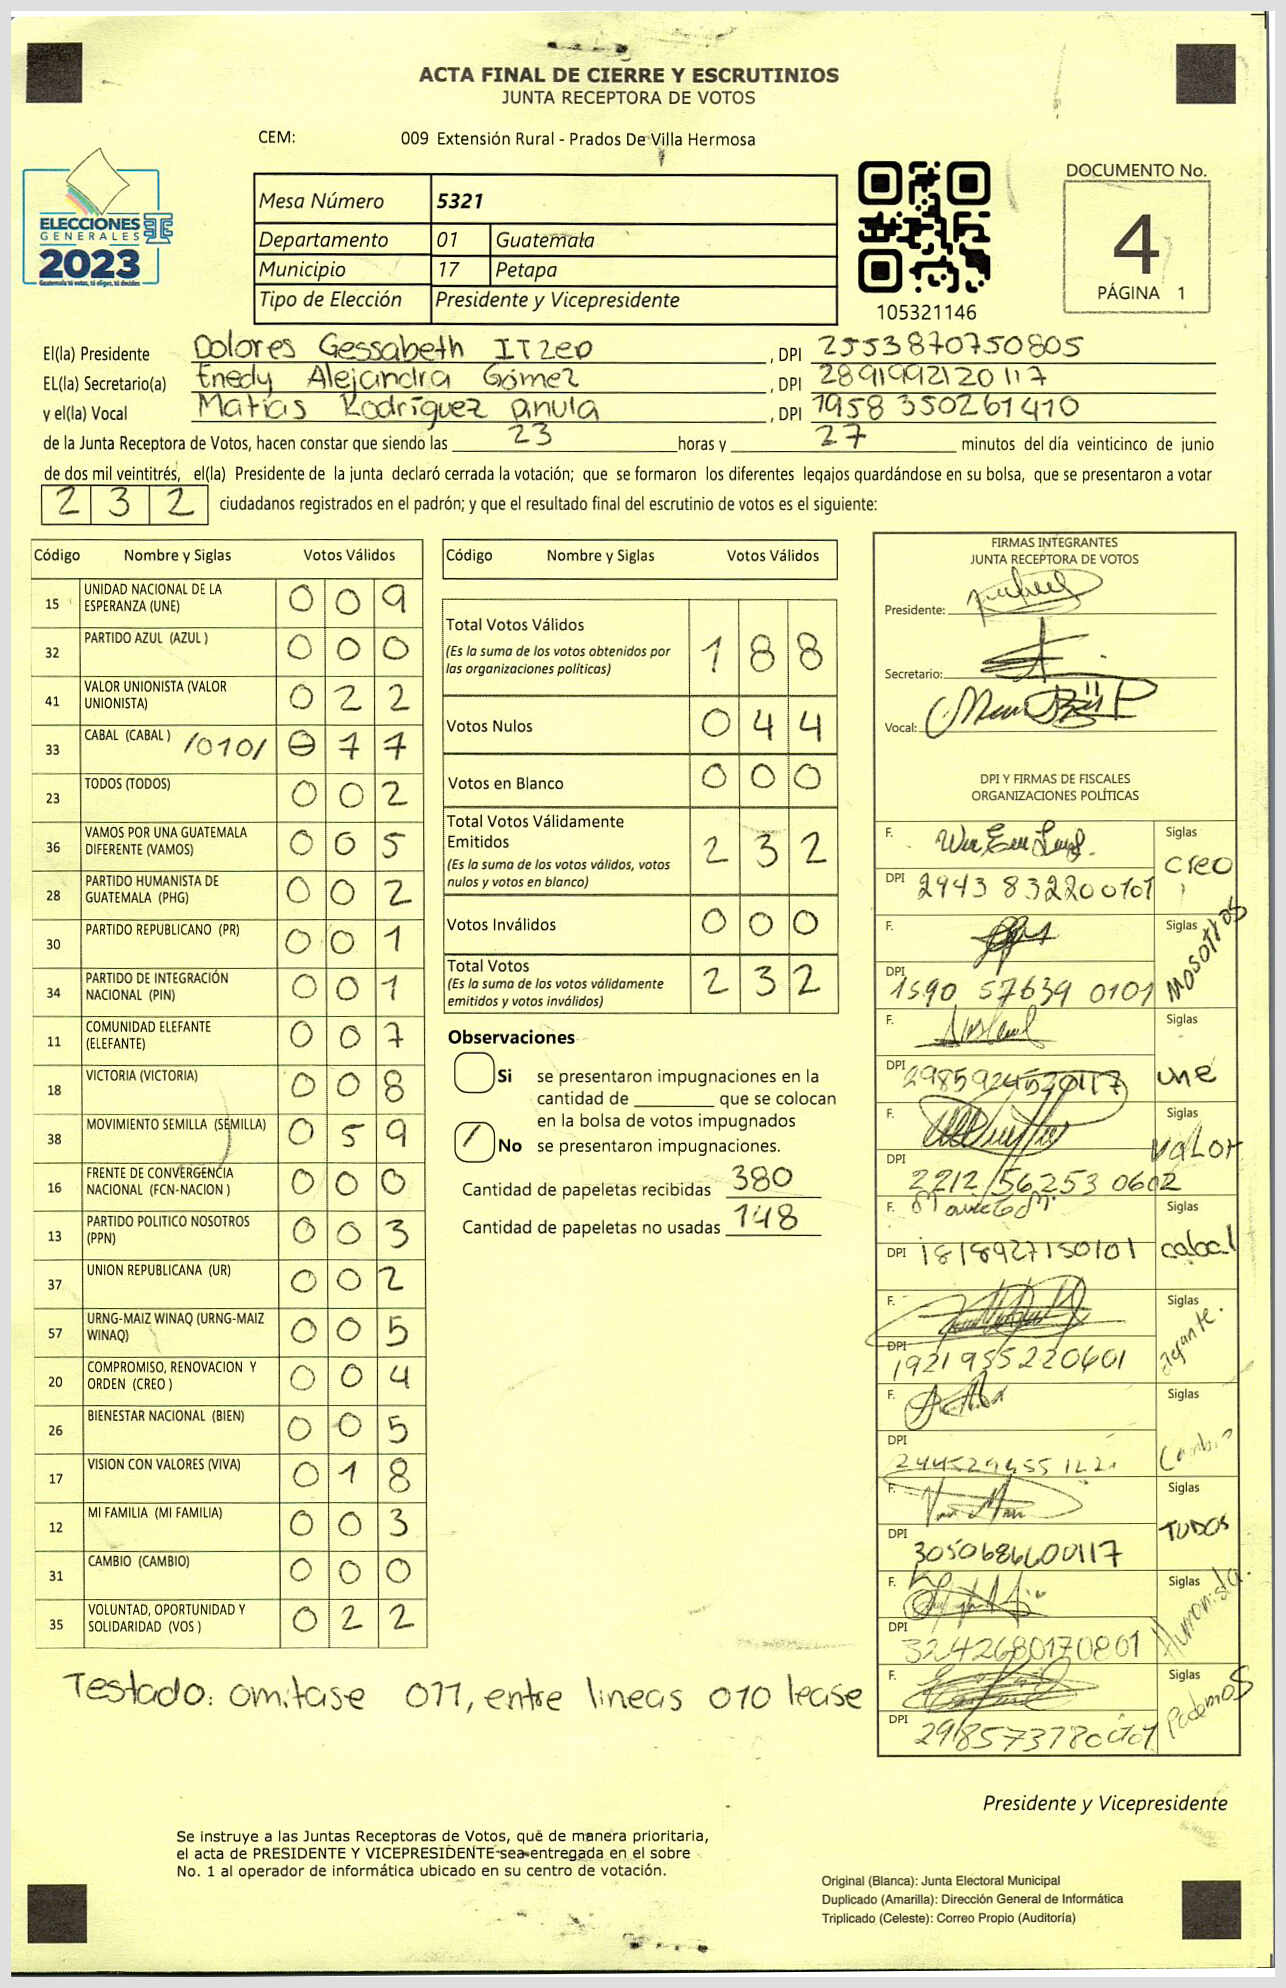 ACTA FINAL DE CIERRE Y ESCRUTINIOS
JUNTA RECEPTORA DE VOTOS
CEM: 009 Extensión Rural - Prados De Villa Hermosa
ELECCIONES
GENERALES
2023
Guatemala tú votas, tú eliges, tú decides
Mesa Número 5321
Departamento 01 Guatemala
Municipio 17 Petapa
Tipo de Elección Presidente y Vicepresidente
105321146
DOCUMENTO No.
4
PÁGINA 1
El(la) Presidente Dolores Gessabeth Itzep , DPI 2553870750805
EL(la) Secretario(a) Enedy Alejandra Gómez , DPI 2891992120117
y el(la) Vocal Matías Rodríguez pinula , DPI 1958 350261410
de la Junta Receptora de Votos, hacen constar que siendo las 23 horas y 27 minutos del día veinticinco de junio
de dos mil veintitrés, el(la) Presidente de la junta declaró cerrada la votación; que se formaron los diferentes legajos guardándose en su bolsa, que se presentaron a votar
232 ciudadanos registrados en el padrón; y que el resultado final del escrutinio de votos es el siguiente:
Código Nombre y Siglas Votos Válidos
15 UNIDAD NACIONAL DE LA ESPERANZA (UNE) 0 0 9
32 PARTIDO AZUL (AZUL ) 0 0 0
41 VALOR UNIONISTA (VALOR UNIONISTA) 0 2 2
33 CABAL (CABAL ) /010/ 0 1 1
23 TODOS (TODOS) 0 0 2
36 VAMOS POR UNA GUATEMALA DIFERENTE (VAMOS) 0 0 5
28 PARTIDO HUMANISTA DE GUATEMALA (PHG) 0 0 2
30 PARTIDO REPUBLICANO (PR) 0 0 1
34 PARTIDO DE INTEGRACIÓN NACIONAL (PIN) 0 0 1
11 COMUNIDAD ELEFANTE (ELEFANTE) 0 0 7
18 VICTORIA (VICTORIA) 0 0 8
38 MOVIMIENTO SEMILLA (SEMILLA) 0 5 9
16 FRENTE DE CONVERGENCIA NACIONAL (FCN-NACION ) 0 0 0
13 PARTIDO POLITICO NOSOTROS (PPN) 0 0 3
37 UNION REPUBLICANA (UR) 0 0 2
57 URNG-MAIZ WINAQ (URNG-MAIZ WINAQ) 0 0 5
20 COMPROMISO, RENOVACION Y ORDEN (CREO ) 0 0 4
26 BIENESTAR NACIONAL (BIEN) 0 0 5
17 VISION CON VALORES (VIVA) 0 1 8
12 MI FAMILIA (MI FAMILIA) 0 0 3
31 CAMBIO (CAMBIO) 0 0 0
35 VOLUNTAD, OPORTUNIDAD Y SOLIDARIDAD (VOS ) 0 2 2
Testado: omitase 011, entre lineas 010 lease
Código Nombre y Siglas Votos Válidos
Total Votos Válidos 1 8 8
(Es la suma de los votos obtenidos por
las organizaciones políticas)
Votos Nulos 0 4 4
Votos en Blanco 0 0 0
Total Votos Válidamente
Emitidos 2 3 2
(Es la suma de los votos válidos, votos
nulos y votos en blanco)
Votos Inválidos 0 0 0
Total Votos 2 3 2
(Es la suma de los votos válidamente
emitidos y votos inválidos)
Observaciones
Si se presentaron impugnaciones en la
cantidad de ________ que se colocan
en la bolsa de votos impugnados
/ No se presentaron impugnaciones.
Cantidad de papeletas recibidas 380
Cantidad de papeletas no usadas 148
FIRMAS INTEGRANTES
JUNTA RECEPTORA DE VOTOS
Presidente:
Secretario:
Vocal:
DPI Y FIRMAS DE FISCALES
ORGANIZACIONES POLÍTICAS
F. Siglas creo
DPI 2943 832200101
F. Siglas Nosotros
DPI 1590 57639 0101
F. Siglas une
DPI 2985924520117
F. Siglas Valor
DPI 2212 156253 0602
F. Siglas cabal
DPI 1818927150101
F. Siglas elefante.
DPI 1921955220601
F. Siglas Cambio
DPI
F. Siglas TODOS
DPI 3050686600117
F. Siglas Humanista.
DPI 3242680170801
F. Siglas Podemos
DPI
Presidente y Vicepresidente
Se instruye a las Juntas Receptoras de Votos, que de manera prioritaria,
el acta de PRESIDENTE Y VICEPRESIDENTE sea entregada en el sobre
No. 1 al operador de informática ubicado en su centro de votación.
Original (Blanca): Junta Electoral Municipal
Duplicado (Amarilla): Dirección General de Informática
Triplicado (Celeste): Correo Propio (Auditoría)